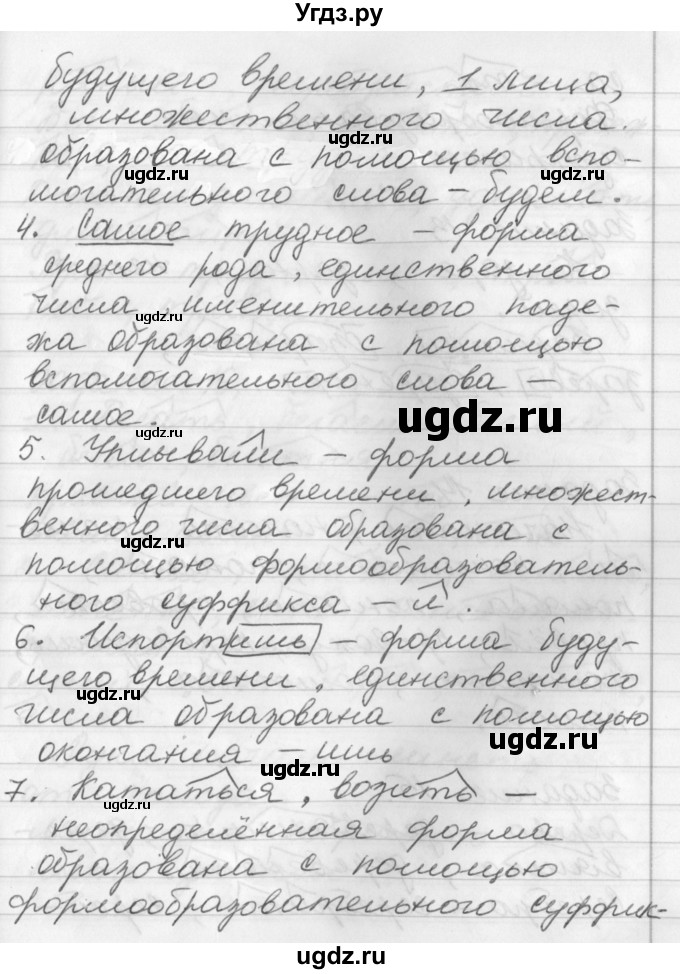 Угдз.ру
будущего времени, 1 лица,
множественного числа.
ugdz.ru
образована с помощью вспо-
могательного слова – будем.
4. Самое трудное – форма
ugdz.ru
среднего рода, единственного
числа, именительного паде-
ugdz.ru
жа образована с помощью
вспомогательного слова –
самое.
ugdz.ru
ugdz.ru
5. Уплывали – форма
прошедшего времени, множест-
венного числа образована с
ugdz.ru
помощью формообразователь-
ного суффикса – л.
6. Испортишь – форма буду-
щего времени, единственного
ugdz.ru
числа образована с помощью
ugdz.ru
окончания – ишь
ugdz.ru
7. Кататься, возить –
ugdz.ru
неопределённая форма
образована с помощью
формообразовательного суффик-
ugdz.ru